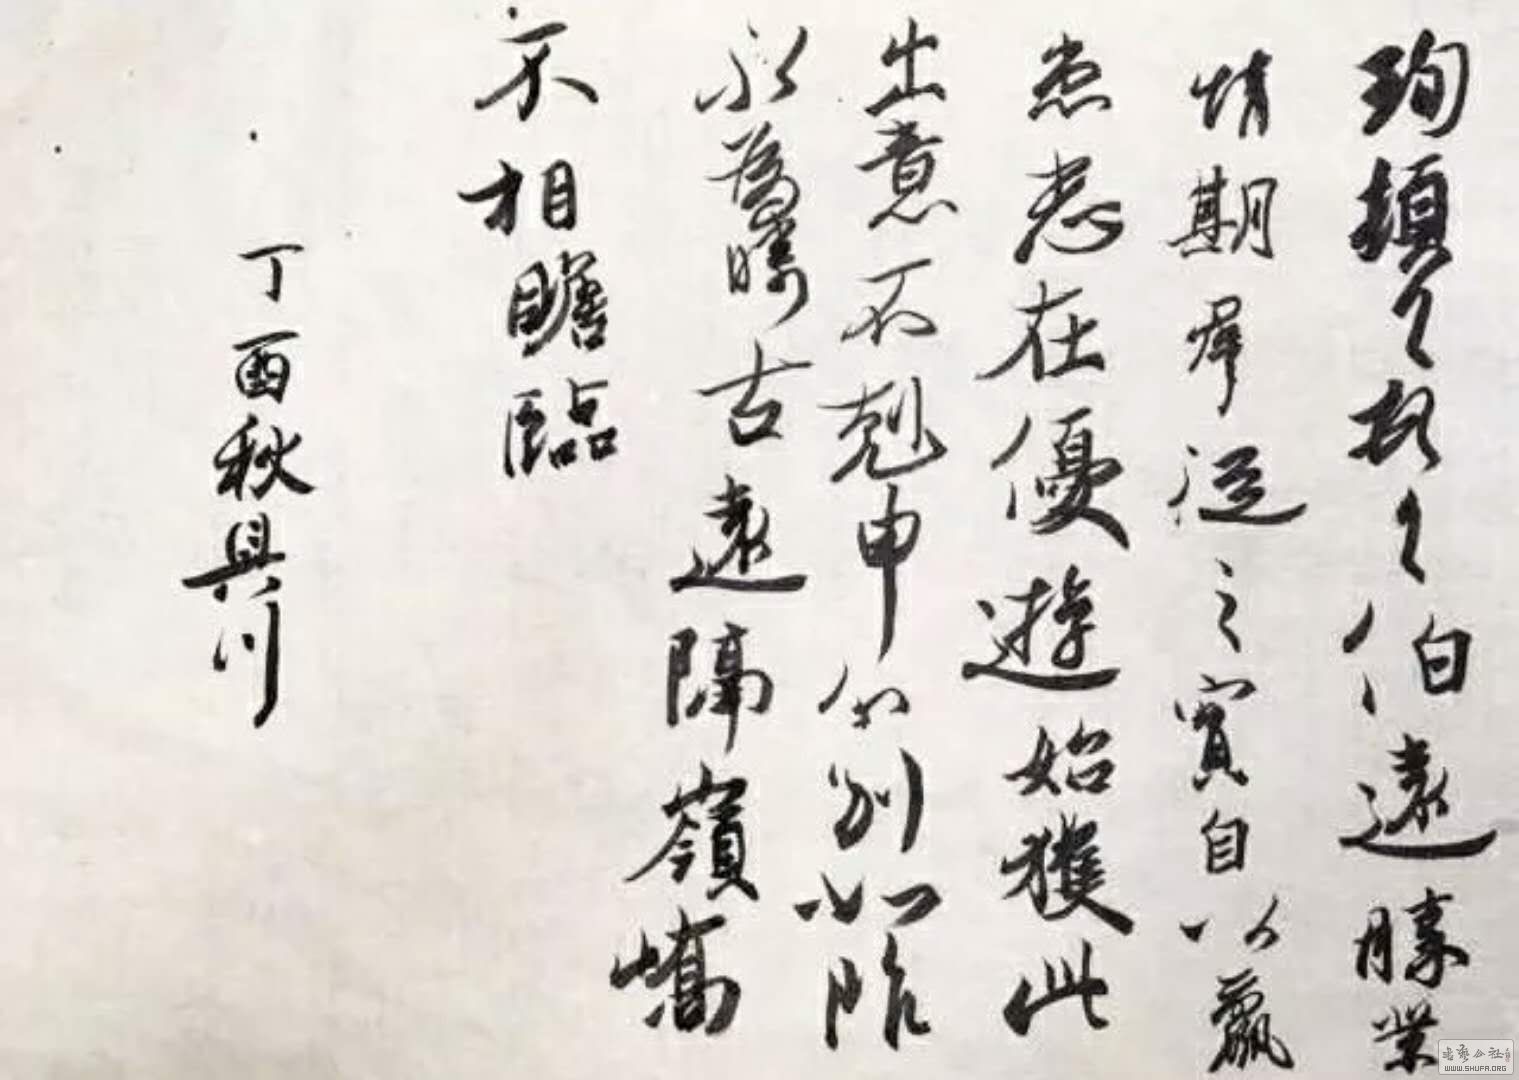 珣頓首頓首伯遠勝業
情期群從之寶自以羸
患志在優遊始獲此
出意不剋申分別如昨
永為疇古遠隔嶺嶠
不相瞻臨
丁酉秋興川
书艺公社
WWW.SHUFA.ORG